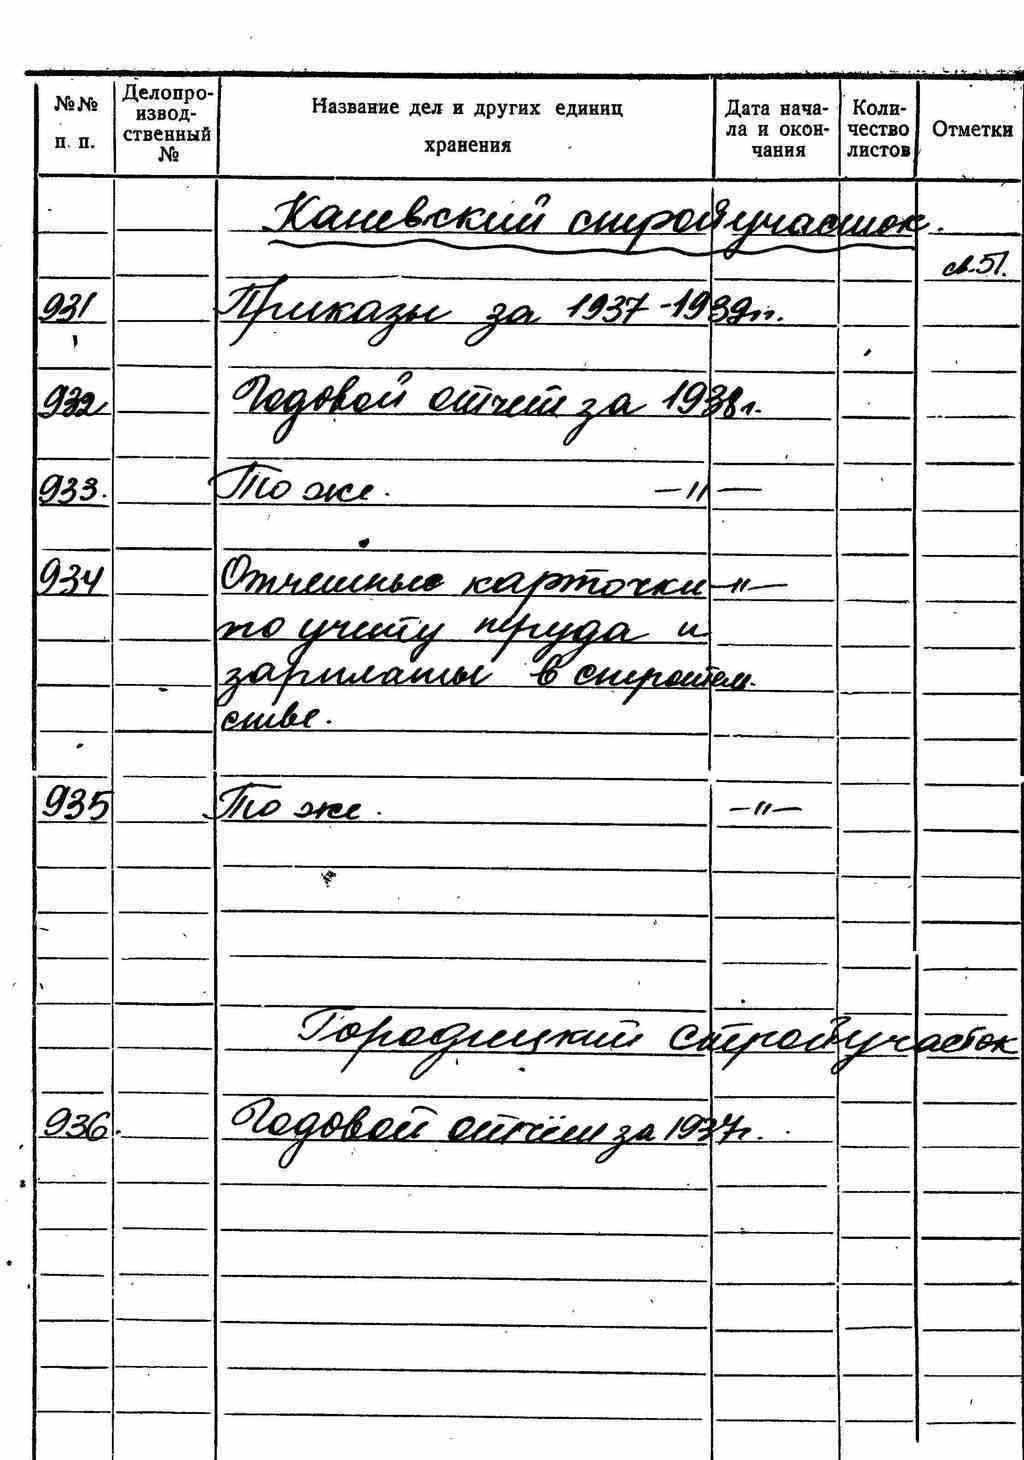 №№ п. п.
Делопро-
извод-
ственный
№
Название дел и других единиц
хранения
Дата нача-
ла и окон-
чания
Коли-
чество
листов
Отметки
Каневский стройучасток.
св.51.
931 Приказы за 1937-1939гг.
932 Годовой отчет за 1938г.
933. То же. —"—
934 Отчетные карточки —"—
по учету труда и
зарплаты в строитель-
стве.
935 То же. —"—
Городицкий стройучасток
936. Годовой отчёт за 1937г.